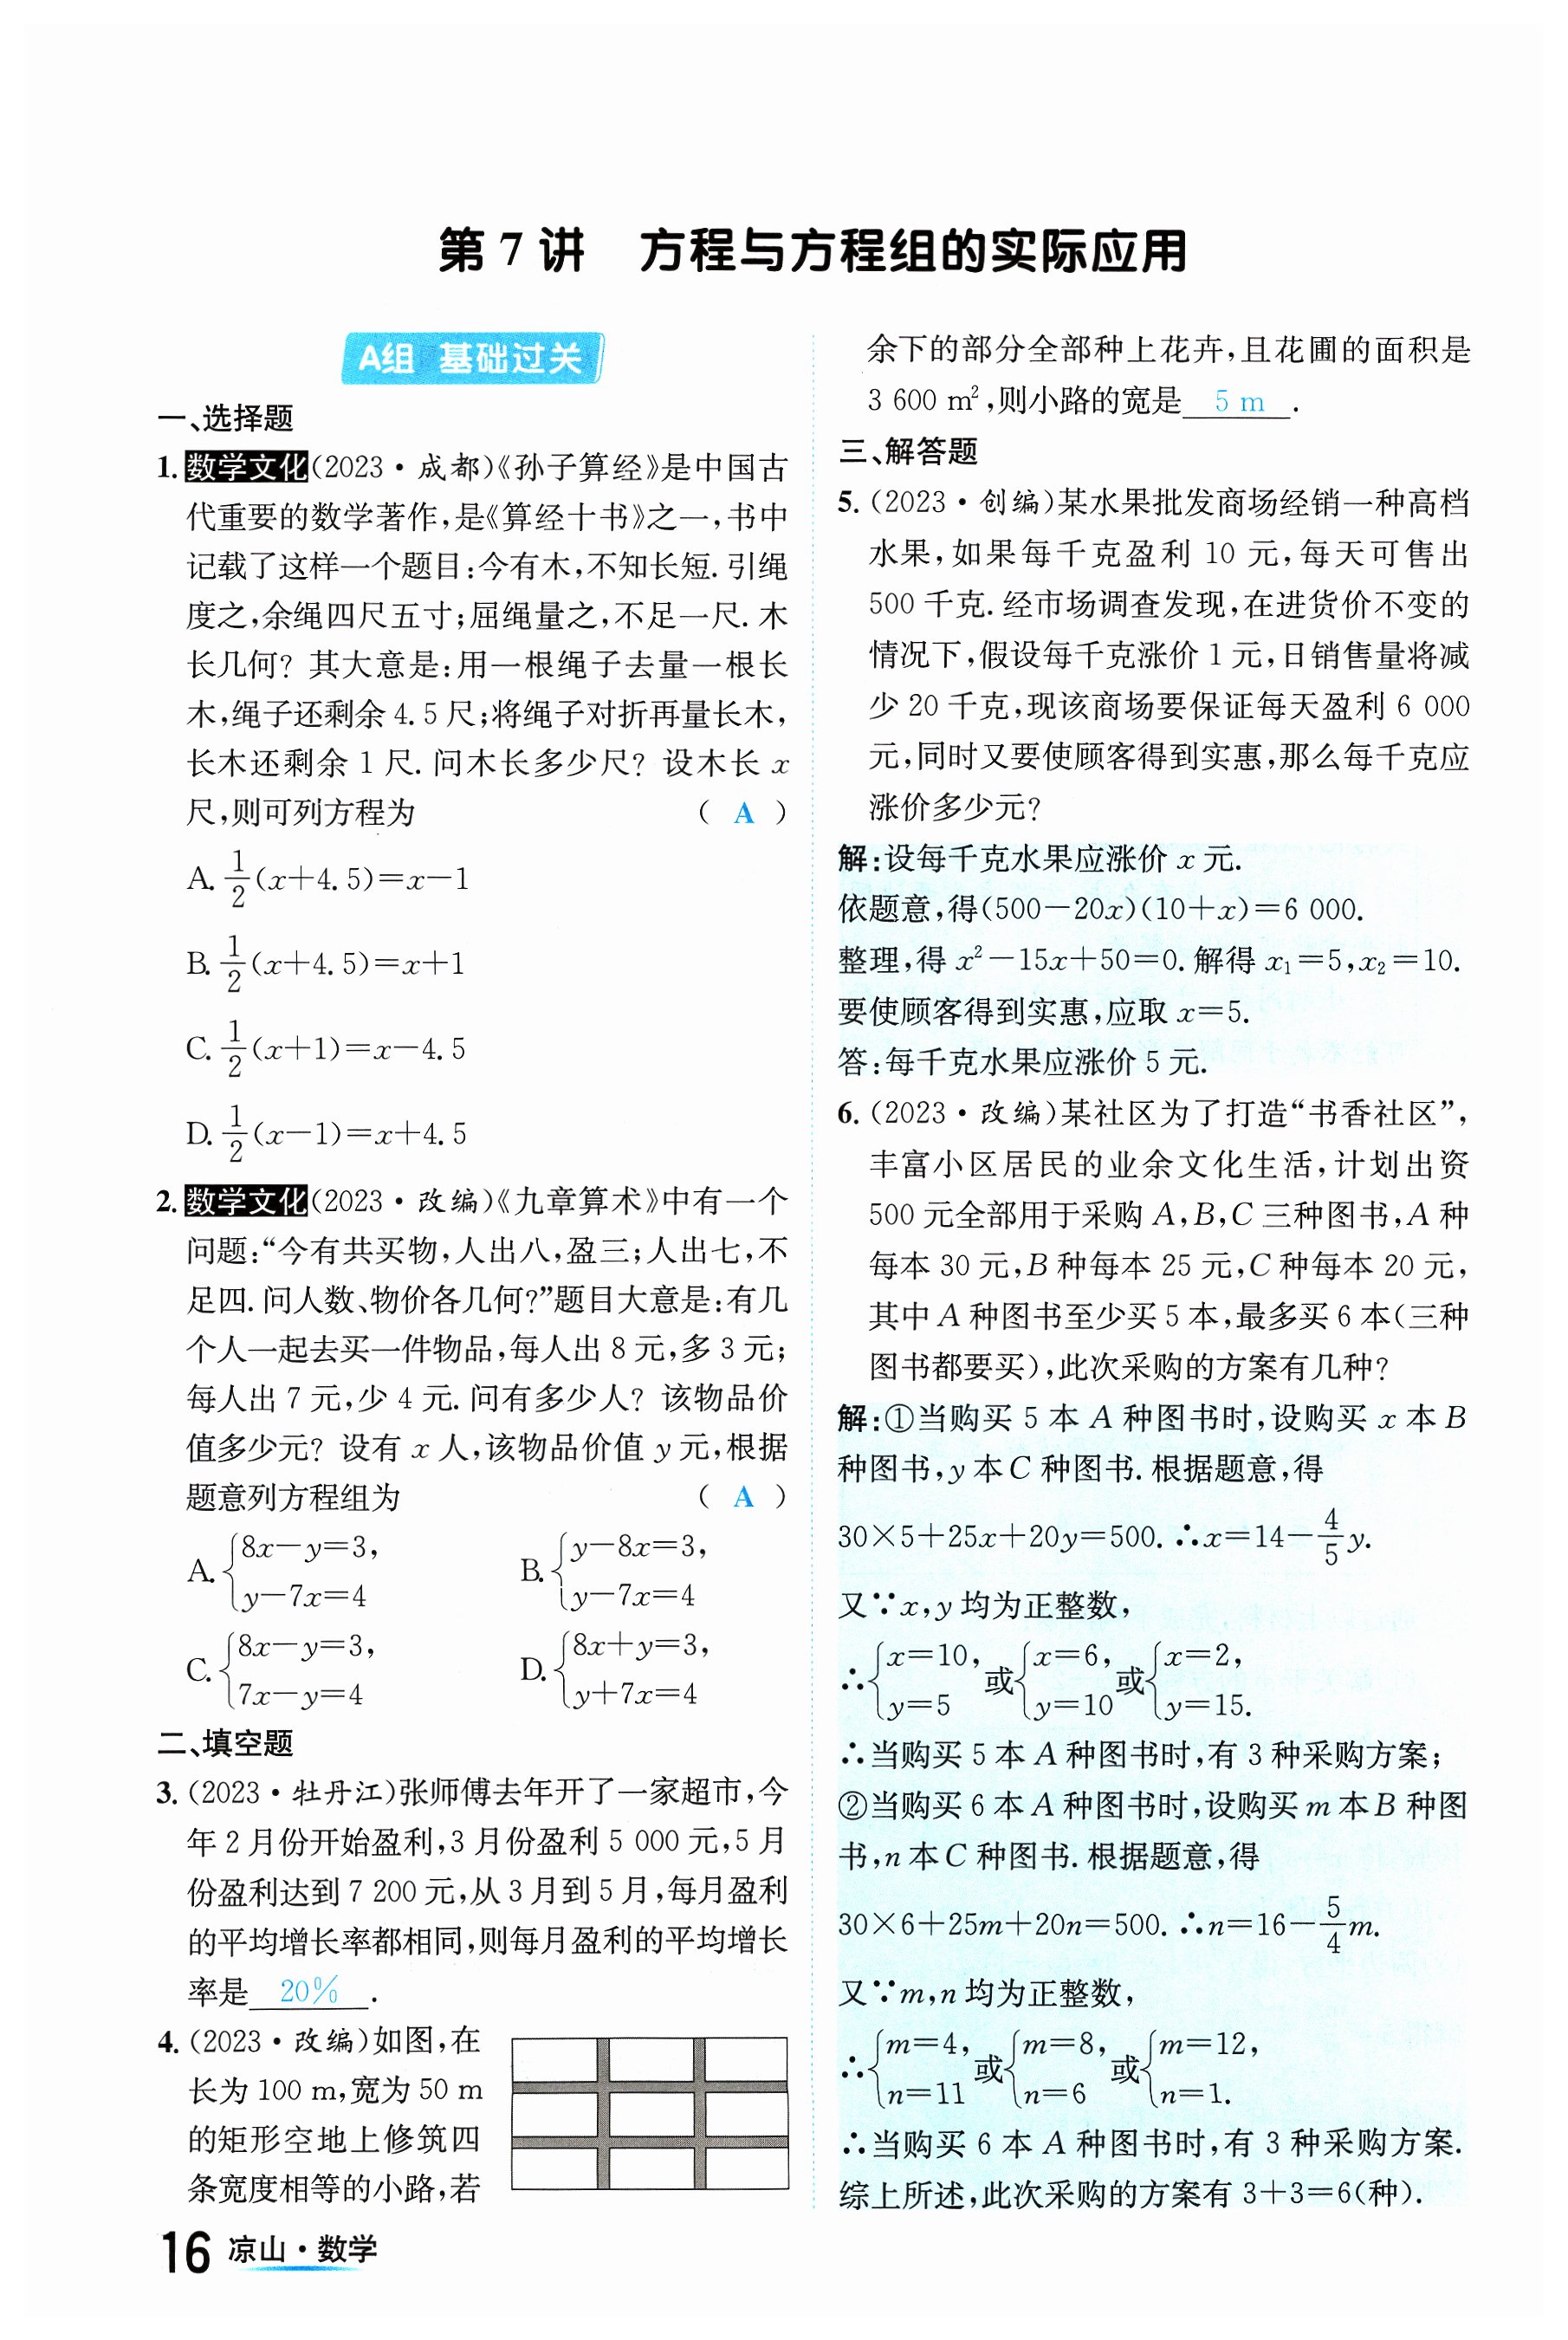 第 7 讲　方程与方程组的实际应用
A组 基础过关
一、选择题
1. 数学文化(2023·成都)《孙子算经》是中国古
代重要的数学著作,是《算经十书》之一,书中
记载了这样一个题目:今有木,不知长短.引绳
度之,余绳四尺五寸;屈绳量之,不足一尺.木
长几何? 其大意是:用一根绳子去量一根长
木,绳子还剩余 4.5 尺;将绳子对折再量长木,
长木还剩余 1 尺.问木长多少尺? 设木长 x
尺,则可列方程为 ( A )
A. 1/2(x+4.5)=x-1
B. 1/2(x+4.5)=x+1
C. 1/2(x+1)=x-4.5
D. 1/2(x-1)=x+4.5
2. 数学文化(2023·改编)《九章算术》中有一个
问题:“今有共买物,人出八,盈三;人出七,不
足四.问人数、物价各几何?”题目大意是:有几
个人一起去买一件物品,每人出 8 元,多 3 元;
每人出 7 元,少 4 元.问有多少人? 该物品价
值多少元? 设有 x 人,该物品价值 y 元,根据
题意列方程组为 ( A )
A. {8x-y=3, y-7x=4 B. {y-8x=3, y-7x=4
C. {8x-y=3, 7x-y=4 D. {8x+y=3, y+7x=4
二、填空题
3. (2023·牡丹江)张师傅去年开了一家超市,今
年 2 月份开始盈利,3 月份盈利 5 000 元,5 月
份盈利达到 7 200 元,从 3 月到 5 月,每月盈利
的平均增长率都相同,则每月盈利的平均增长
率是 20% .
4. (2023·改编)如图,在
长为 100 m,宽为 50 m
的矩形空地上修筑四
条宽度相等的小路,若
余下的部分全部种上花卉,且花圃的面积是
3 600 m²,则小路的宽是 5 m .
三、解答题
5. (2023·创编)某水果批发商场经销一种高档
水果,如果每千克盈利 10 元,每天可售出
500 千克.经市场调查发现,在进货价不变的
情况下,假设每千克涨价 1 元,日销售量将减
少 20 千克,现该商场要保证每天盈利 6 000
元,同时又要使顾客得到实惠,那么每千克应
涨价多少元?
解:设每千克水果应涨价 x 元.
依题意,得(500-20x)(10+x)=6 000.
整理,得 x²-15x+50=0.解得 x₁=5,x₂=10.
要使顾客得到实惠,应取 x=5.
答:每千克水果应涨价 5 元.
6. (2023·改编)某社区为了打造“书香社区”,
丰富小区居民的业余文化生活,计划出资
500 元全部用于采购 A,B,C 三种图书,A 种
每本 30 元,B 种每本 25 元,C 种每本 20 元,
其中 A 种图书至少买 5 本,最多买 6 本(三种
图书都要买),此次采购的方案有几种?
解:①当购买 5 本 A 种图书时,设购买 x 本 B
种图书,y 本 C 种图书.根据题意,得
30×5+25x+20y=500.∴x=14-4/5y.
又∵x,y 均为正整数,
∴{x=10, y=5 或{x=6, y=10 或{x=2, y=15.
∴当购买 5 本 A 种图书时,有 3 种采购方案;
②当购买 6 本 A 种图书时,设购买 m 本 B 种图
书,n 本 C 种图书.根据题意,得
30×6+25m+20n=500.∴n=16-5/4m.
又∵m,n 均为正整数,
∴{m=4, n=11 或{m=8, n=6 或{m=12, n=1.
∴当购买 6 本 A 种图书时,有 3 种采购方案.
综上所述,此次采购的方案有 3+3=6(种).
16 凉山·数学